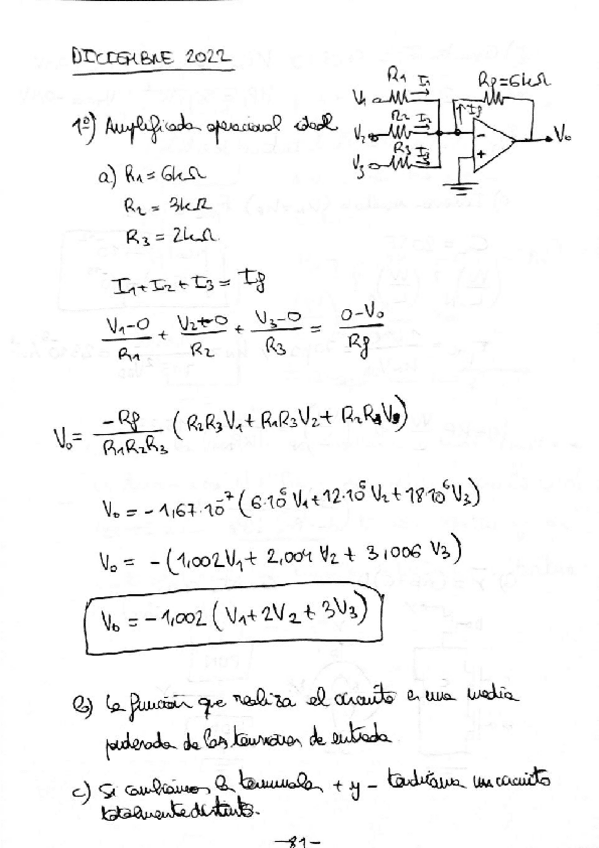 DICIEMBRE 2022
1º) Amplificador operacional ideal
R1 I1 Rf=6kΩ
V1
V2 R2 I2 If
V3 R3 I3 - + Vo
a) R1 = 6kΩ
R2 = 3kΩ
R3 = 2kΩ
I1 + I2 + I3 = If
(V1-0)/R1 + (V2-0)/R2 + (V3-0)/R3 = (0-Vo)/Rf
Vo = -Rf/(R1R2R3) (R2R3V1 + R1R3V2 + R2R1V3)
Vo = -1,67·10^-7 (6·10^6 V1 + 12·10^6 V2 + 18·10^6 V3)
Vo = -(1,002V1 + 2,004 V2 + 3,006 V3)
Vo = -1,002 (V1 + 2V2 + 3V3)
b) La función que realiza el circuito es una media
ponderada de las tensiones de entrada
c) Si cambiamos los terminales + y - tendríamos un circuito
totalmente distinto.
-81-